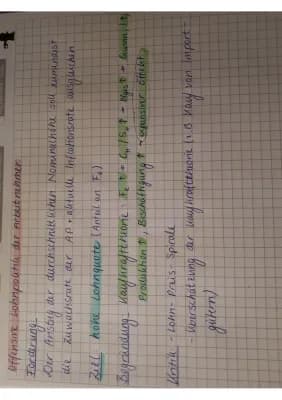 Offensive Lohnpolitik der Arbeitnehmer
Forderung
Der Anstieg der durchschnittlichen Nominallöhne soll zumindest
die Zuwachsrate der AP + aktuelle Inflationsrate ausgleichen
Ziel: hohe Lohnquote (Anteil an
Begründung Kaufkrafttheorie:
Produktion ↑, Beschäftigung ↑ → expansiver Effekt
Kritik - Lohn - Preis - Spirale
- Überschätzung der Kaufkrafttheorie (z.B. Kauf von Import-
gütern)